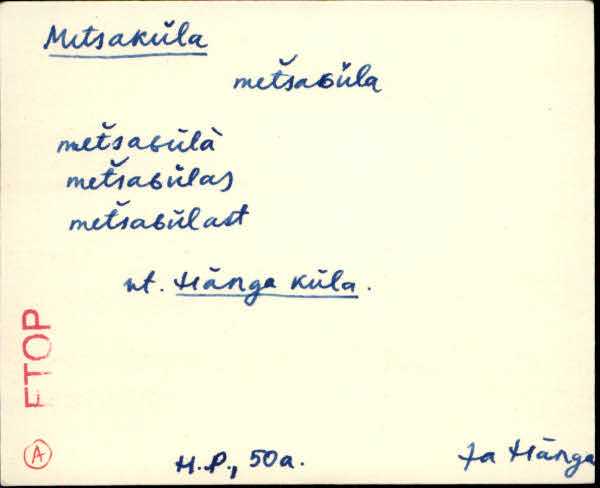 Metsaküla
metšaɢüla
metšaɢülà
metšaɢülas
metšaɢülast
vt. Hänga küla.
ETOP
A
H.P., 50a.
Ja Hänga